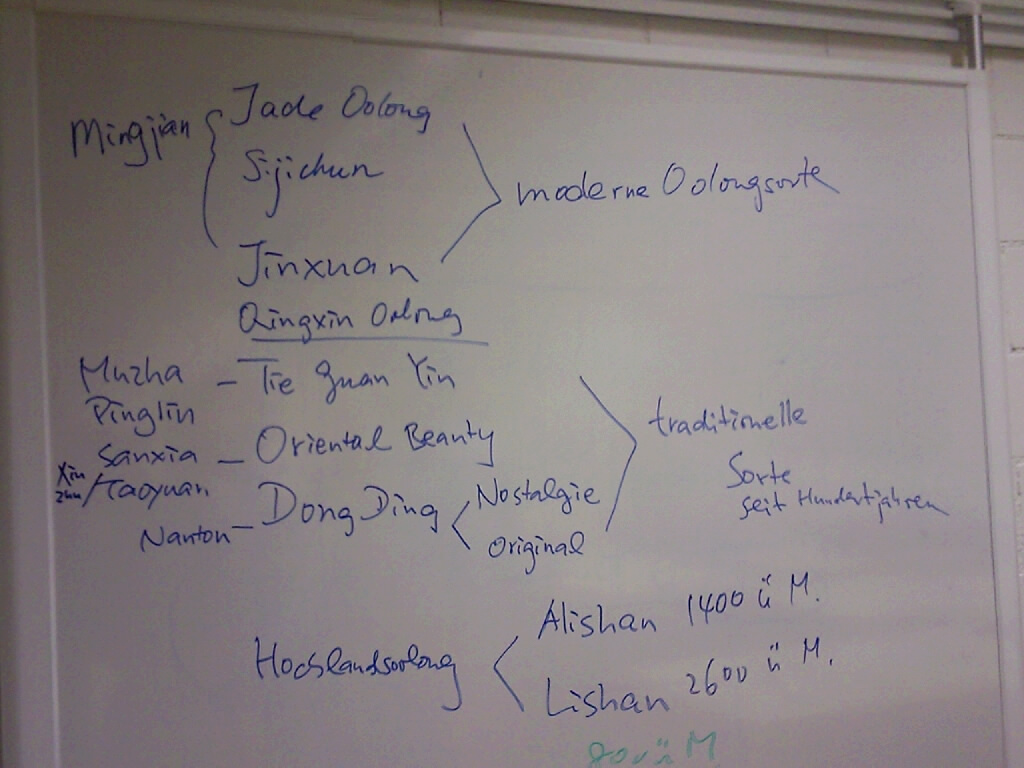 Mingjian { Jade Oolong
Sijichun
moderne Oolongsorte
Jinxuan
Qingxin Oolong
Muzha – Tie Guan Yin
Pinglin
traditionelle
Sanxia – Oriental Beauty
Xin
zhu /Taoyuan
Sorte
seit Hundertjahren
Nanton – Dong Ding < Nostalgie
Original
Alishan 1400 ü M.
Hochlandsoolong <
Lishan 2600 ü M.
ü M